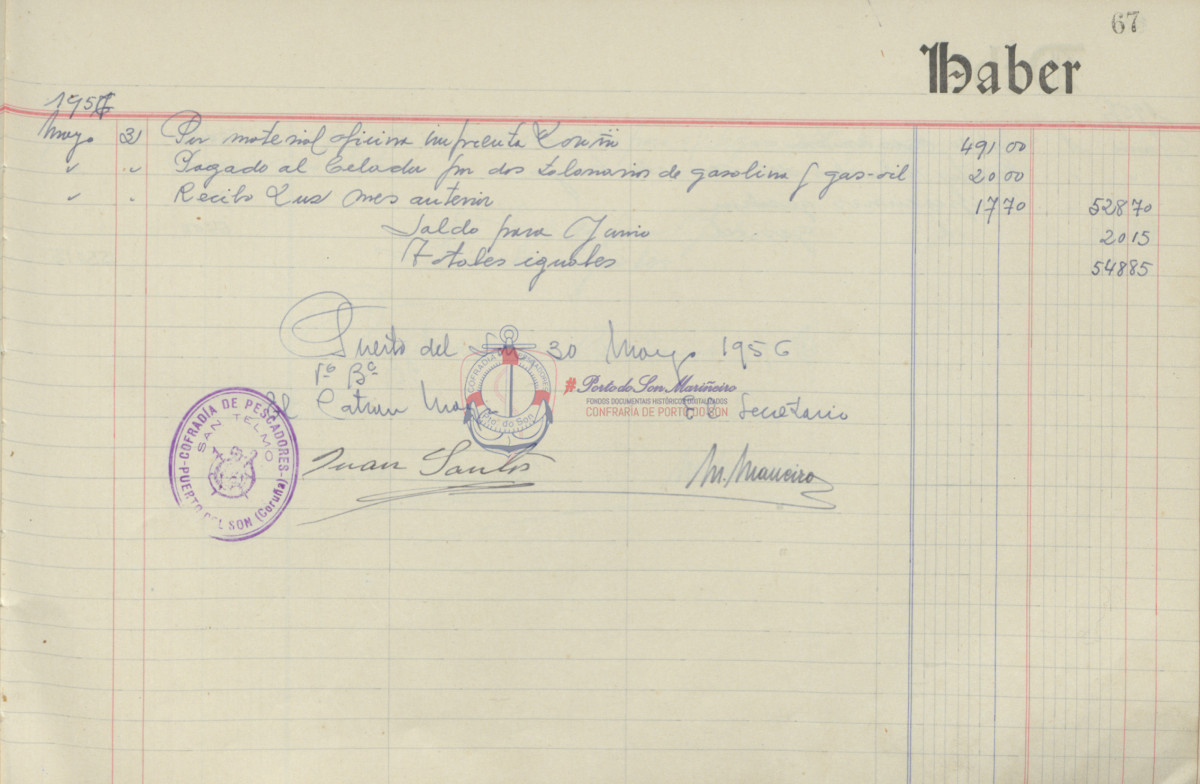 67
Haber
1956
Mayo 31 Por material oficina imprenta 491 00
" " Pagado al Celador por dos talonarios de gasolina y gas-oil 20 00
" " Recibo Luz mes anterior 17 70 528 70
Saldo para Junio 20 15
Totales iguales 548 85
Puerto del Son 30 Mayo 1956
Vº Bº
El Patron Mayor El Secretario
Juan Santos M. Maneiro
COFRADÍA DE PESCADORES
SAN TELMO
PUERTO DEL SON (Coruña)
COFRADÍA DE PESCADORES
Pto. do Son
#Porto do Son Mariñeiro
FONDOS DOCUMENTAIS HISTÓRICOS DIXITALIZADOS
CONFRARÍA DE PORTO DO SON